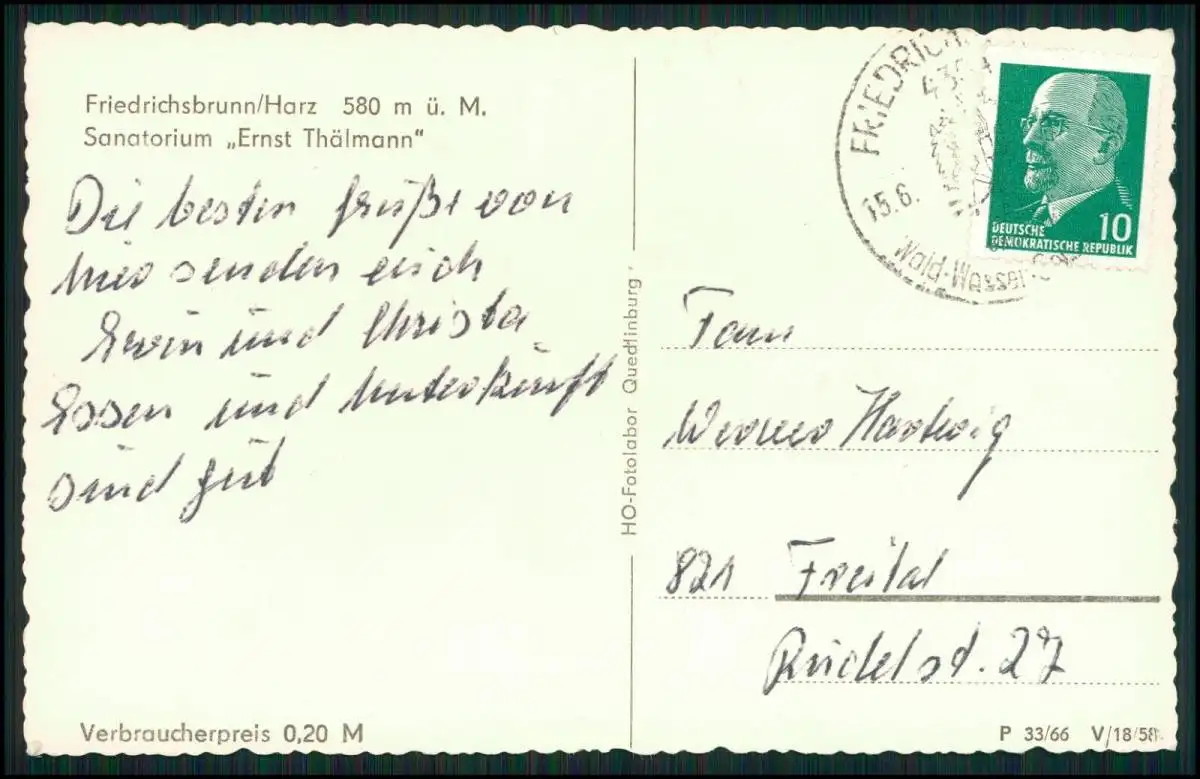 Friedrichsbrunn/Harz 580 m ü. M.
Sanatorium „Ernst Thälmann"
Die besten Grüße von
hier senden euch
Erwin und Christa
Essen und Unterkunft
sind gut
Verbraucherpreis 0,20 M
HO-Fotolabor Quedlinburg
FRIEDRICH
15.6.
Wald-Wasser
10
DEUTSCHE
DEMOKRATISCHE REPUBLIK
Fam
Werner Hartwig
821 Freital
Rudelst. 27
P 33/66 V/18/58